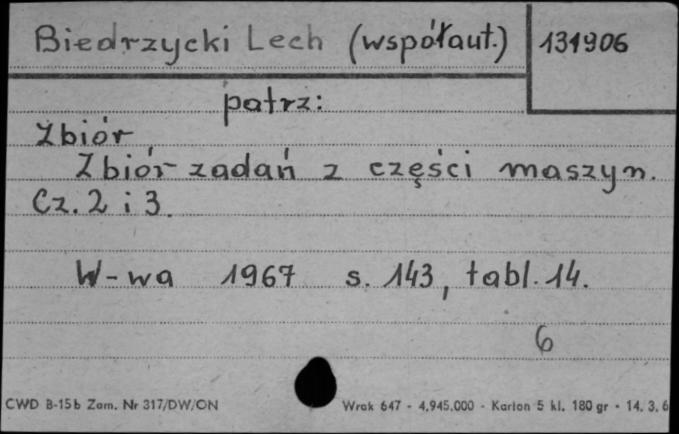 Biedrzycki Lech (współaut.) 131906
patrz:
Zbiór
Zbiór zadań z części maszyn.
Cz. 2 i 3.
W-wa 1967 s. 143, tabl. 14.
6
CWD B-15b Zam. Nr 317/DW/ON Wrak 647 - 4.945.000 - Karton 5 kl. 180 gr - 14. 3. 6